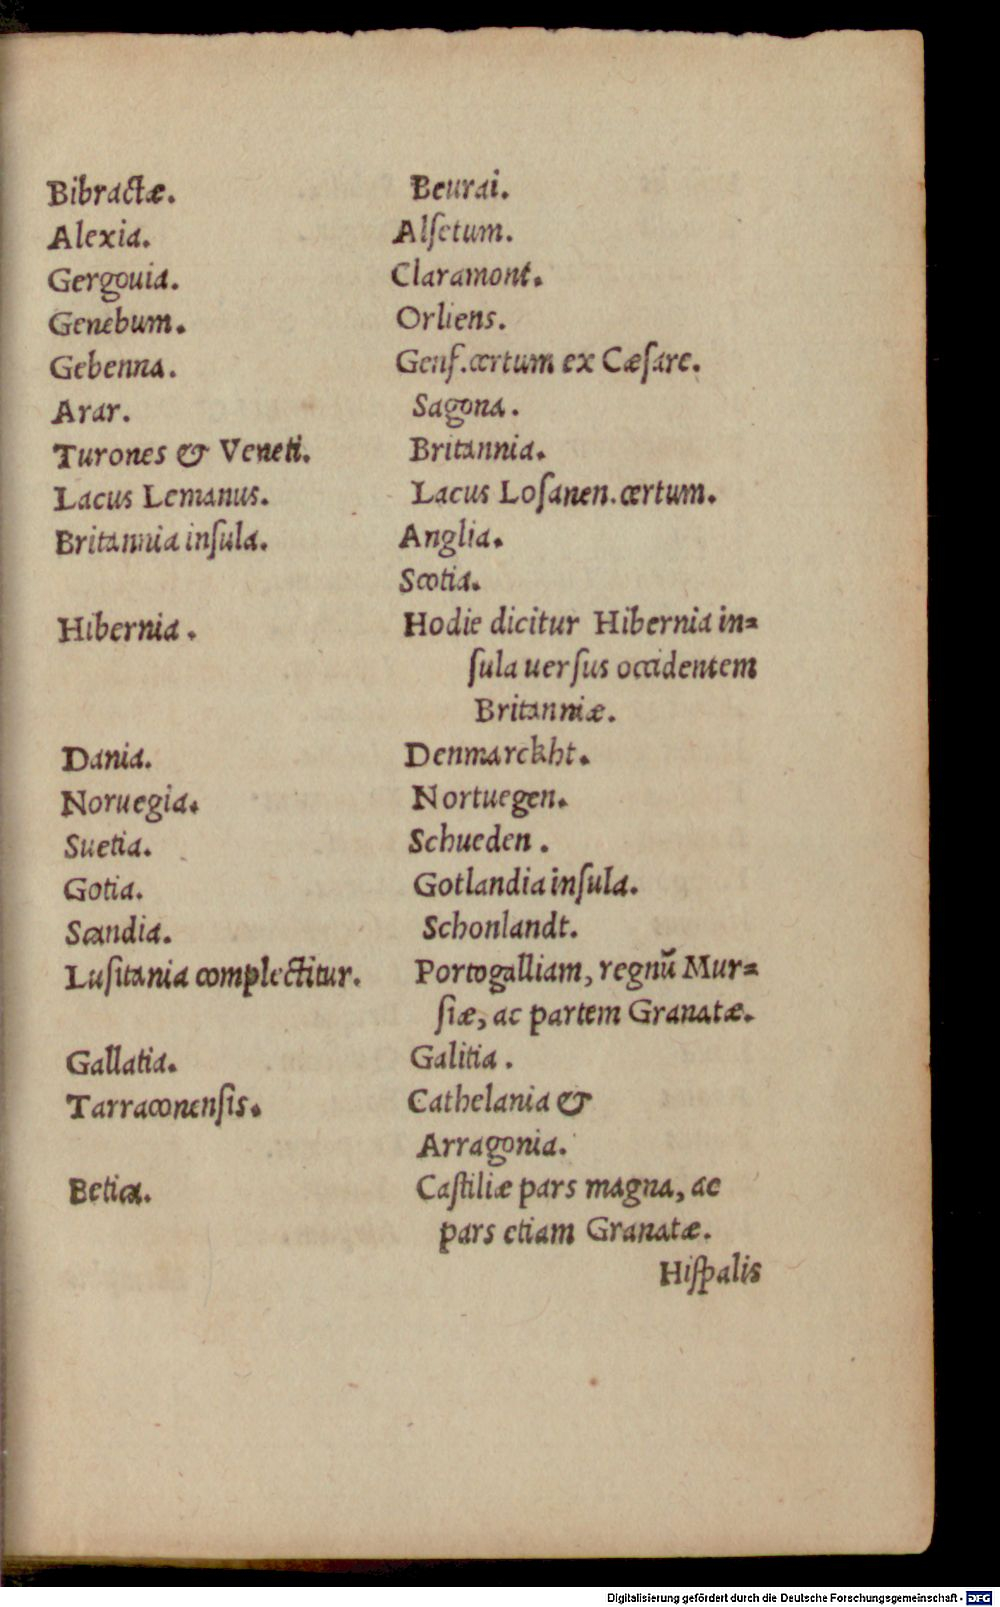 Bibractæ. Beurai.
Alexia. Alſetum.
Gergouia. Claramont.
Genebum. Orliens.
Gebenna. Genf. certum ex Cæſare.
Arar. Sagona.
Turones & Veneti. Britannia.
Lacus Lemanus. Lacus Loſanen. certum.
Britannia inſula. Anglia.
Scotia.
Hibernia. Hodie dicitur Hibernia in=
ſula uerſus occidentem
Britanniæ.
Dania. Denmarckht.
Noruegia. Nortuegen.
Suetia. Schueden.
Gotia. Gotlandia inſula.
Scandia. Schonlandt.
Luſitania complectitur. Portogalliam, regnū Mur=
ſiæ, ac partem Granatæ.
Gallatia. Galitia.
Tarraconenſis. Cathelania &
Arragonia.
Betica. Caſtiliæ pars magna, ac
pars etiam Granatæ.
Hiſpalis
Digitalisierung gefördert durch die Deutsche Forschungsgemeinschaft - DFG